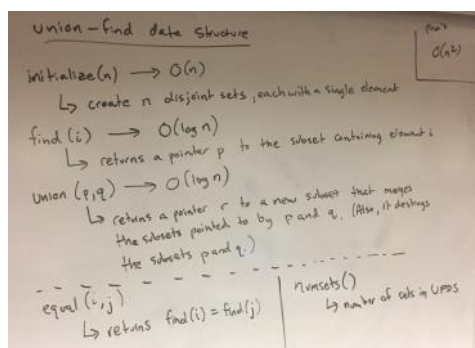 union-find data structure
O(n²)
initialize(n) → O(n)
↳ create n disjoint sets, each with a single element
find(i) → O(log n)
↳ returns a pointer p to the subset containing element i
union (p,q) → O(log n)
↳ returns a pointer r to a new subset that merges
the subsets pointed to by p and q. (Also, it destroys
the subsets p and q.)
equal (i,j)
↳ returns find(i) = find(j)
numsets()
↳ number of sets in UFDS